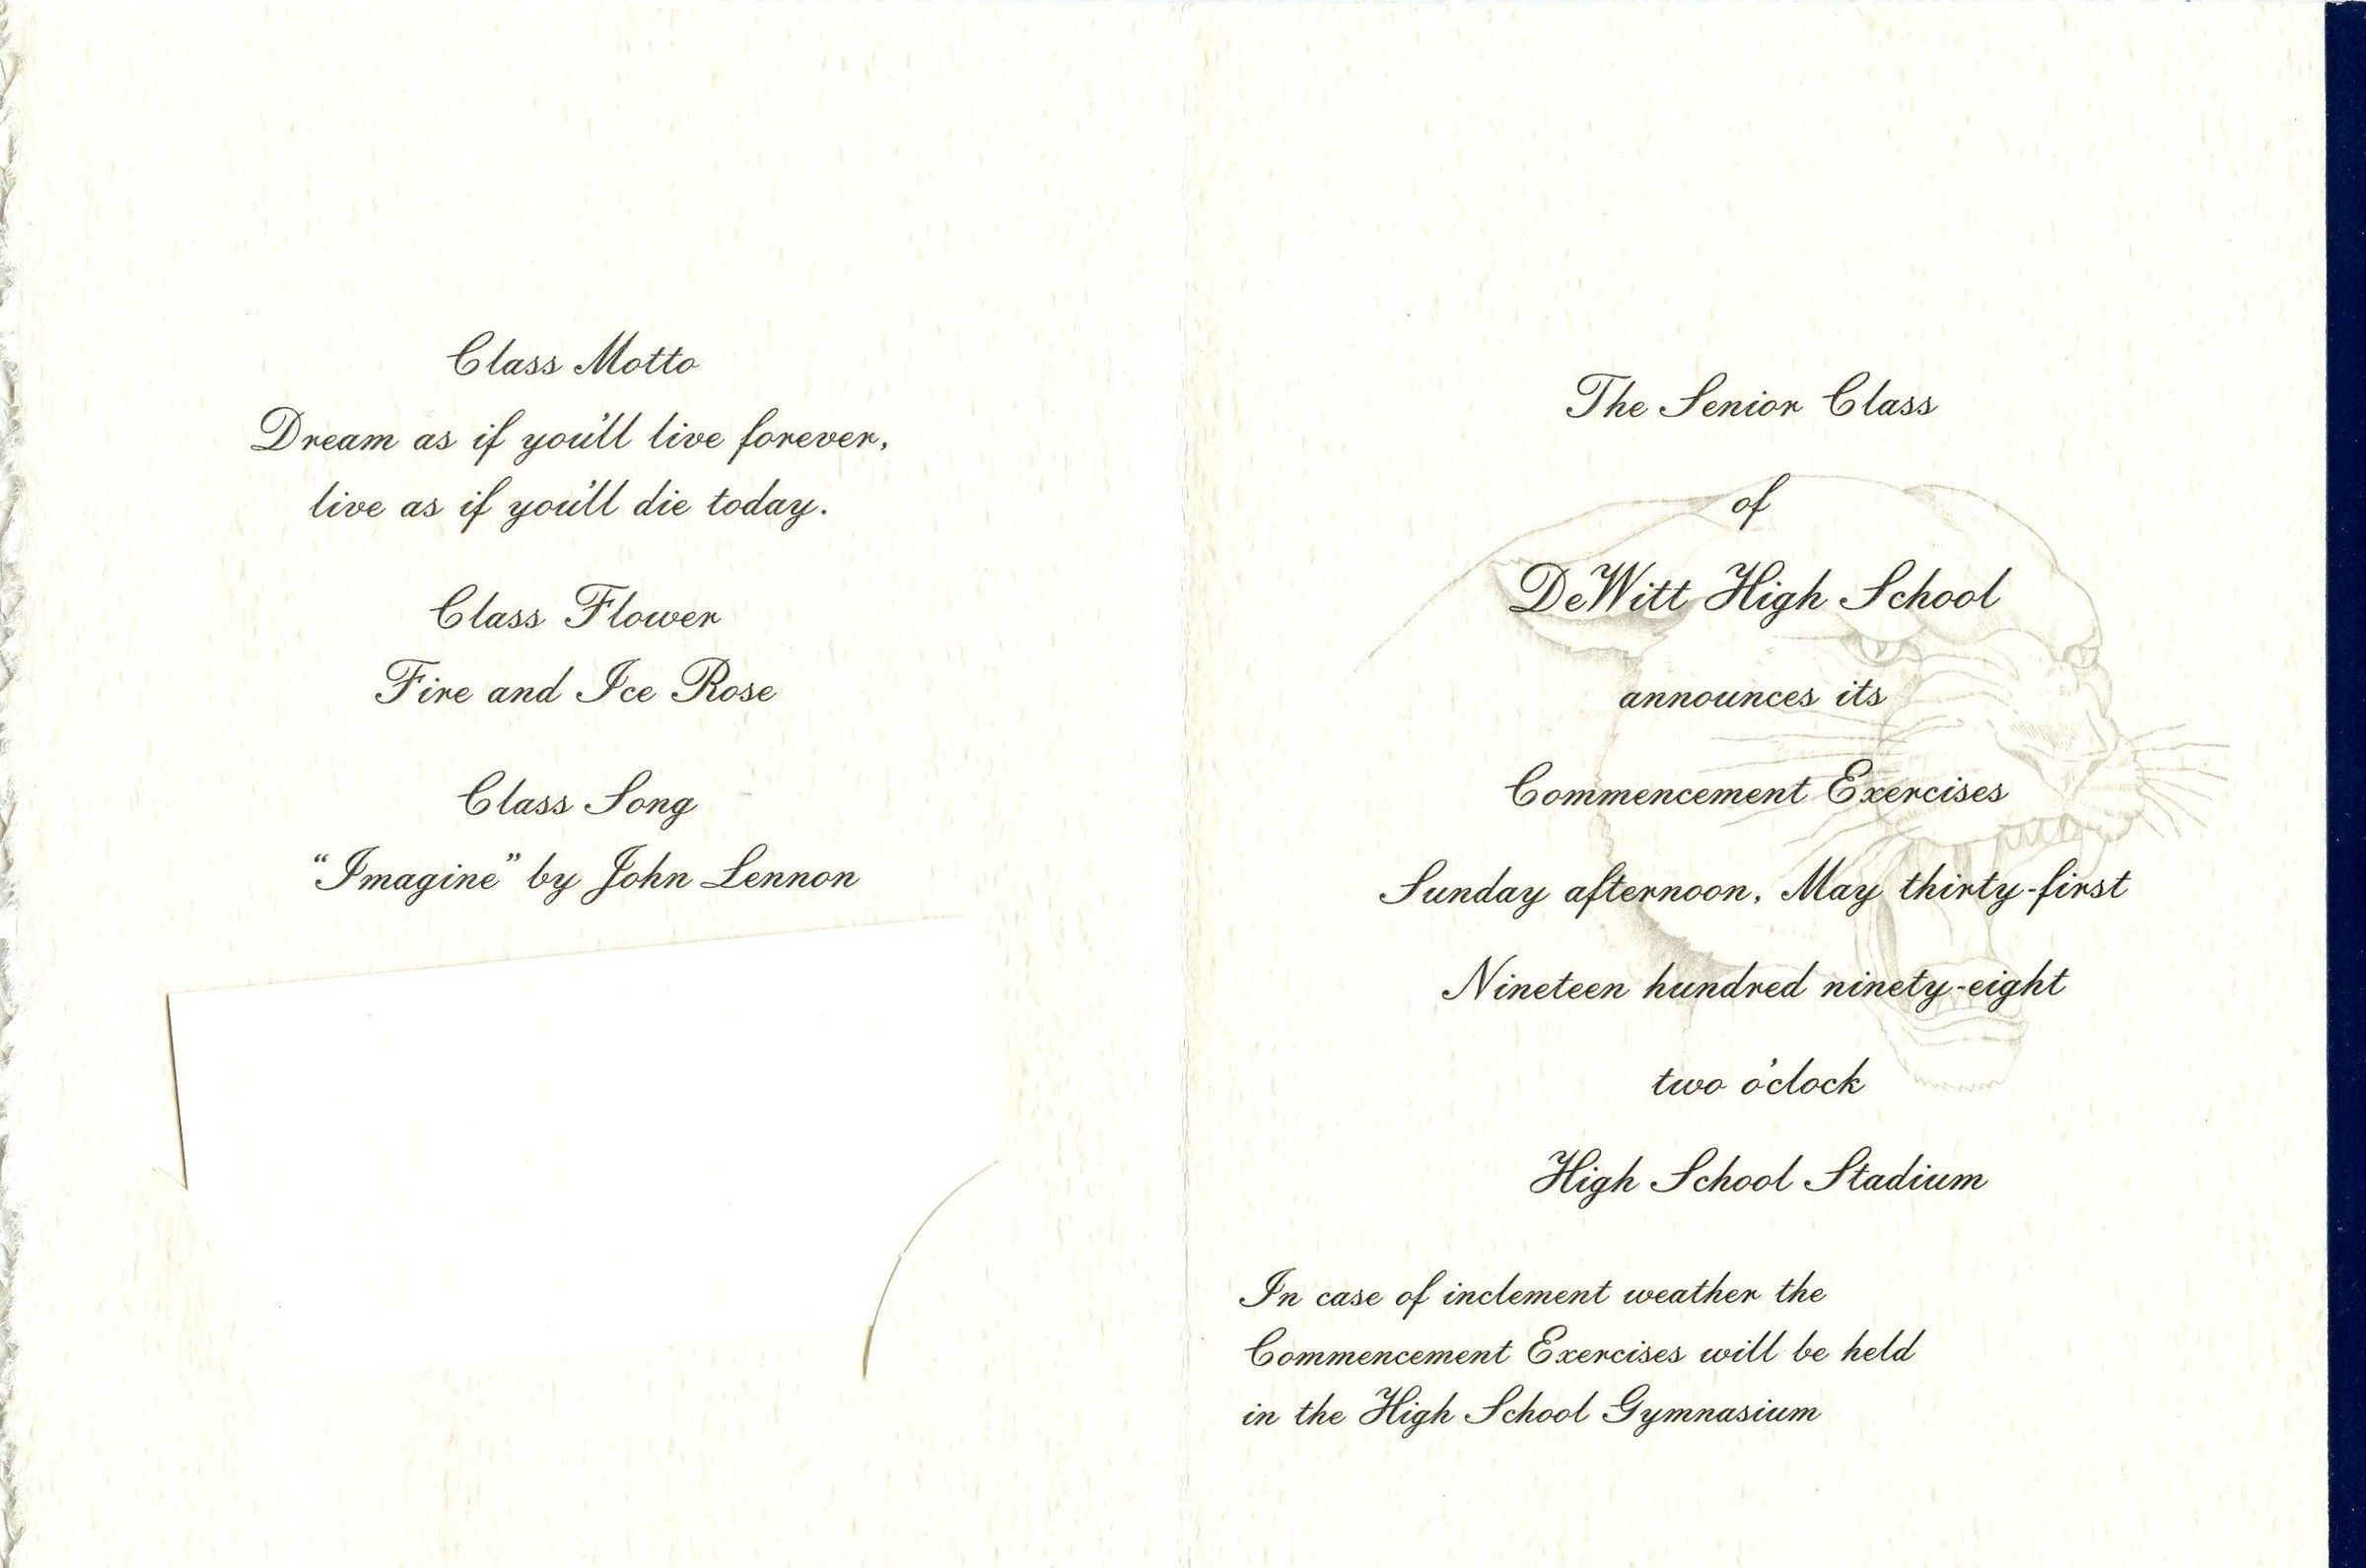 Class Motto
Dream as if you'll live forever,
live as if you'll die today.
Class Flower
Fire and Ice Rose
Class Song
"Imagine" by John Lennon
The Senior Class
of
DeWitt High School
announces its
Commencement Exercises
Sunday afternoon, May thirty-first
Nineteen hundred ninety-eight
two o'clock
High School Stadium
In case of inclement weather the
Commencement Exercises will be held
in the High School Gymnasium